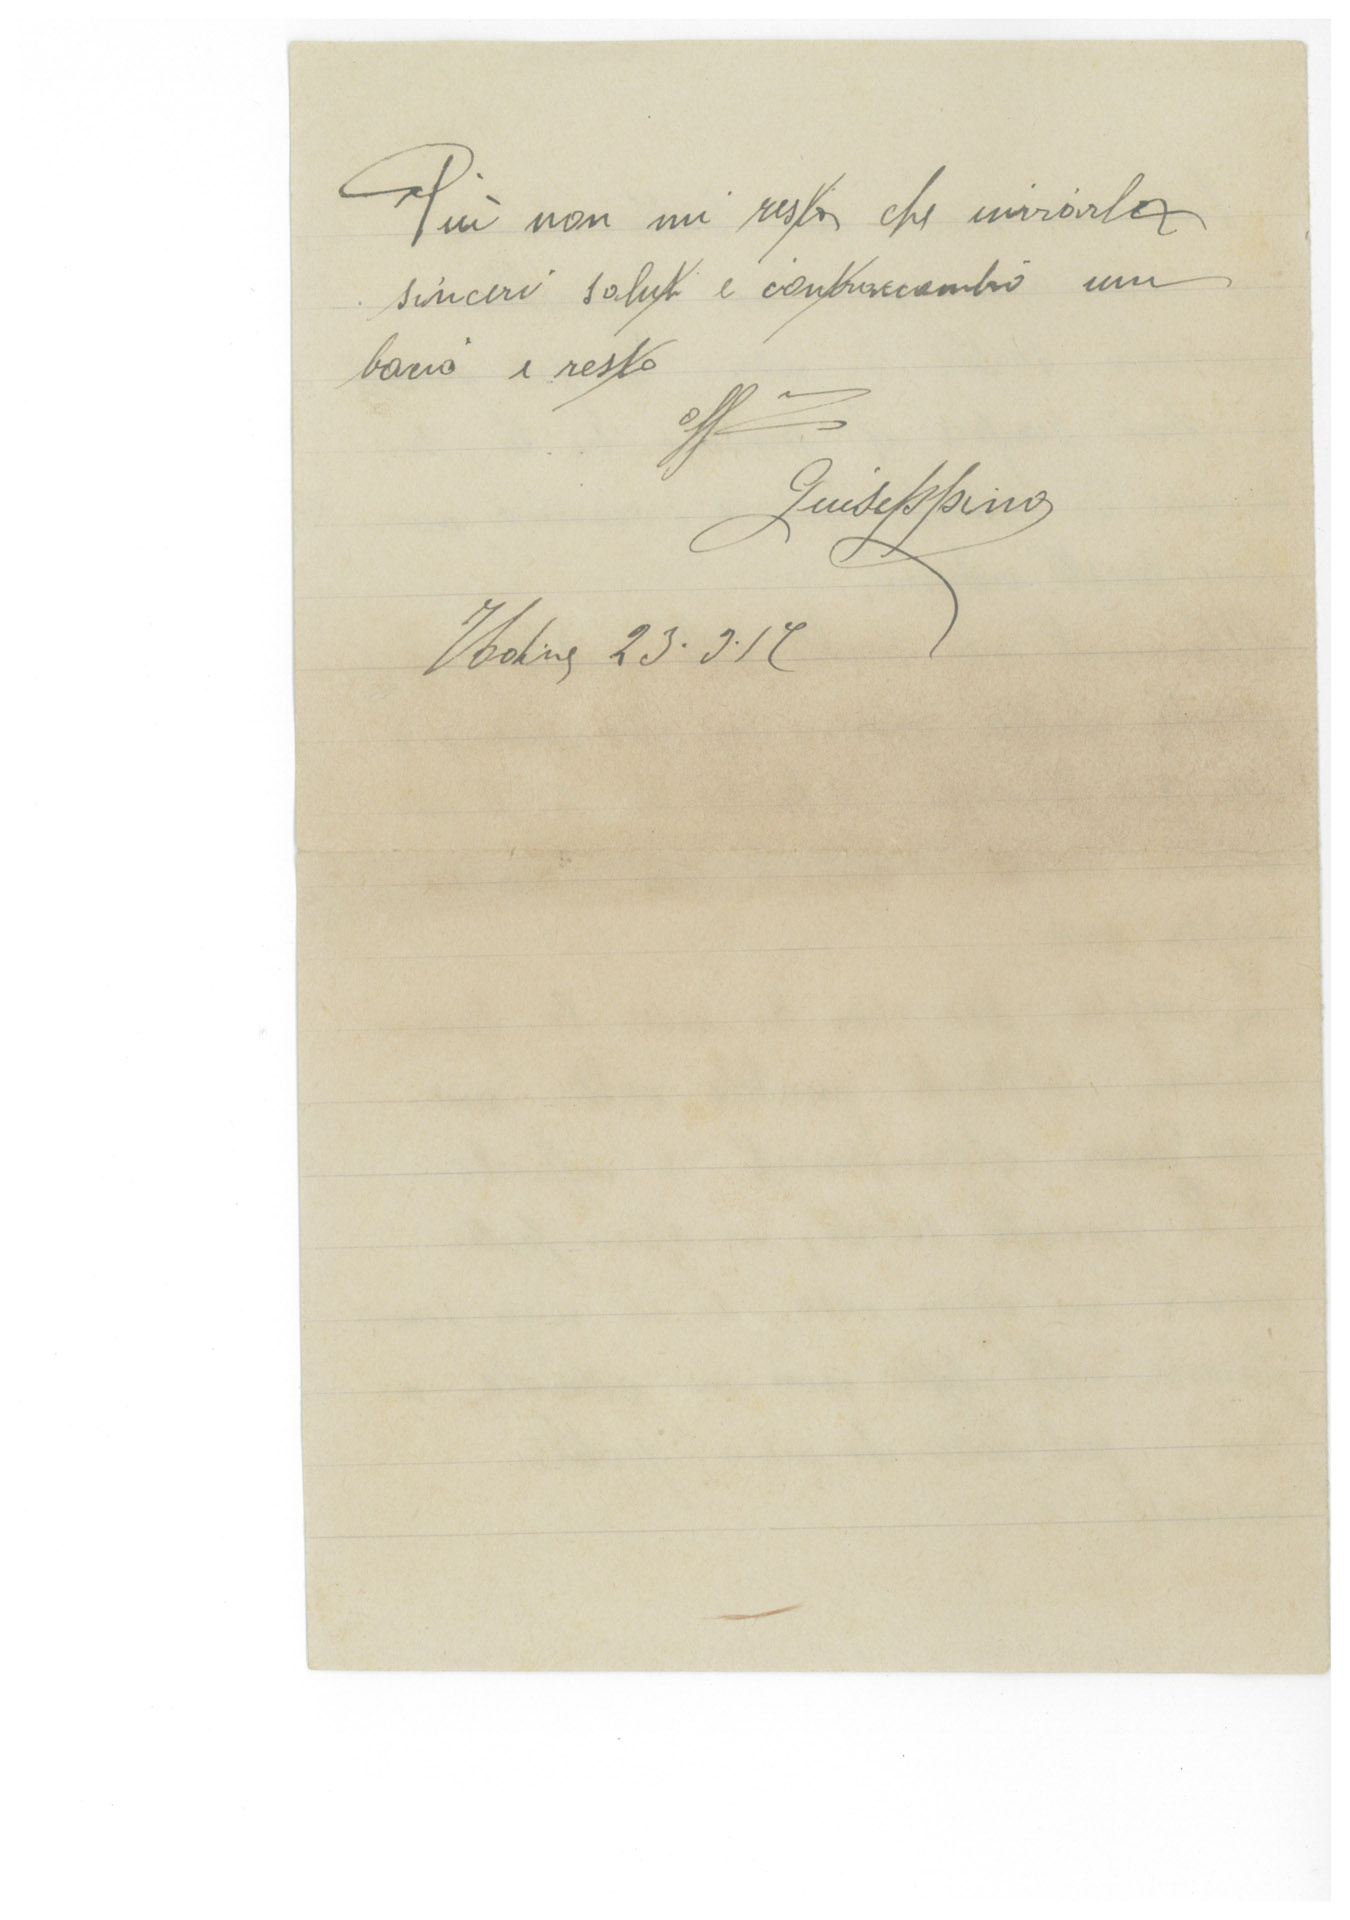 Più non mi resta che inviarla
sinceri saluti e contraccambio un
bacio e resto
aff
Giuseppina
23.9.17